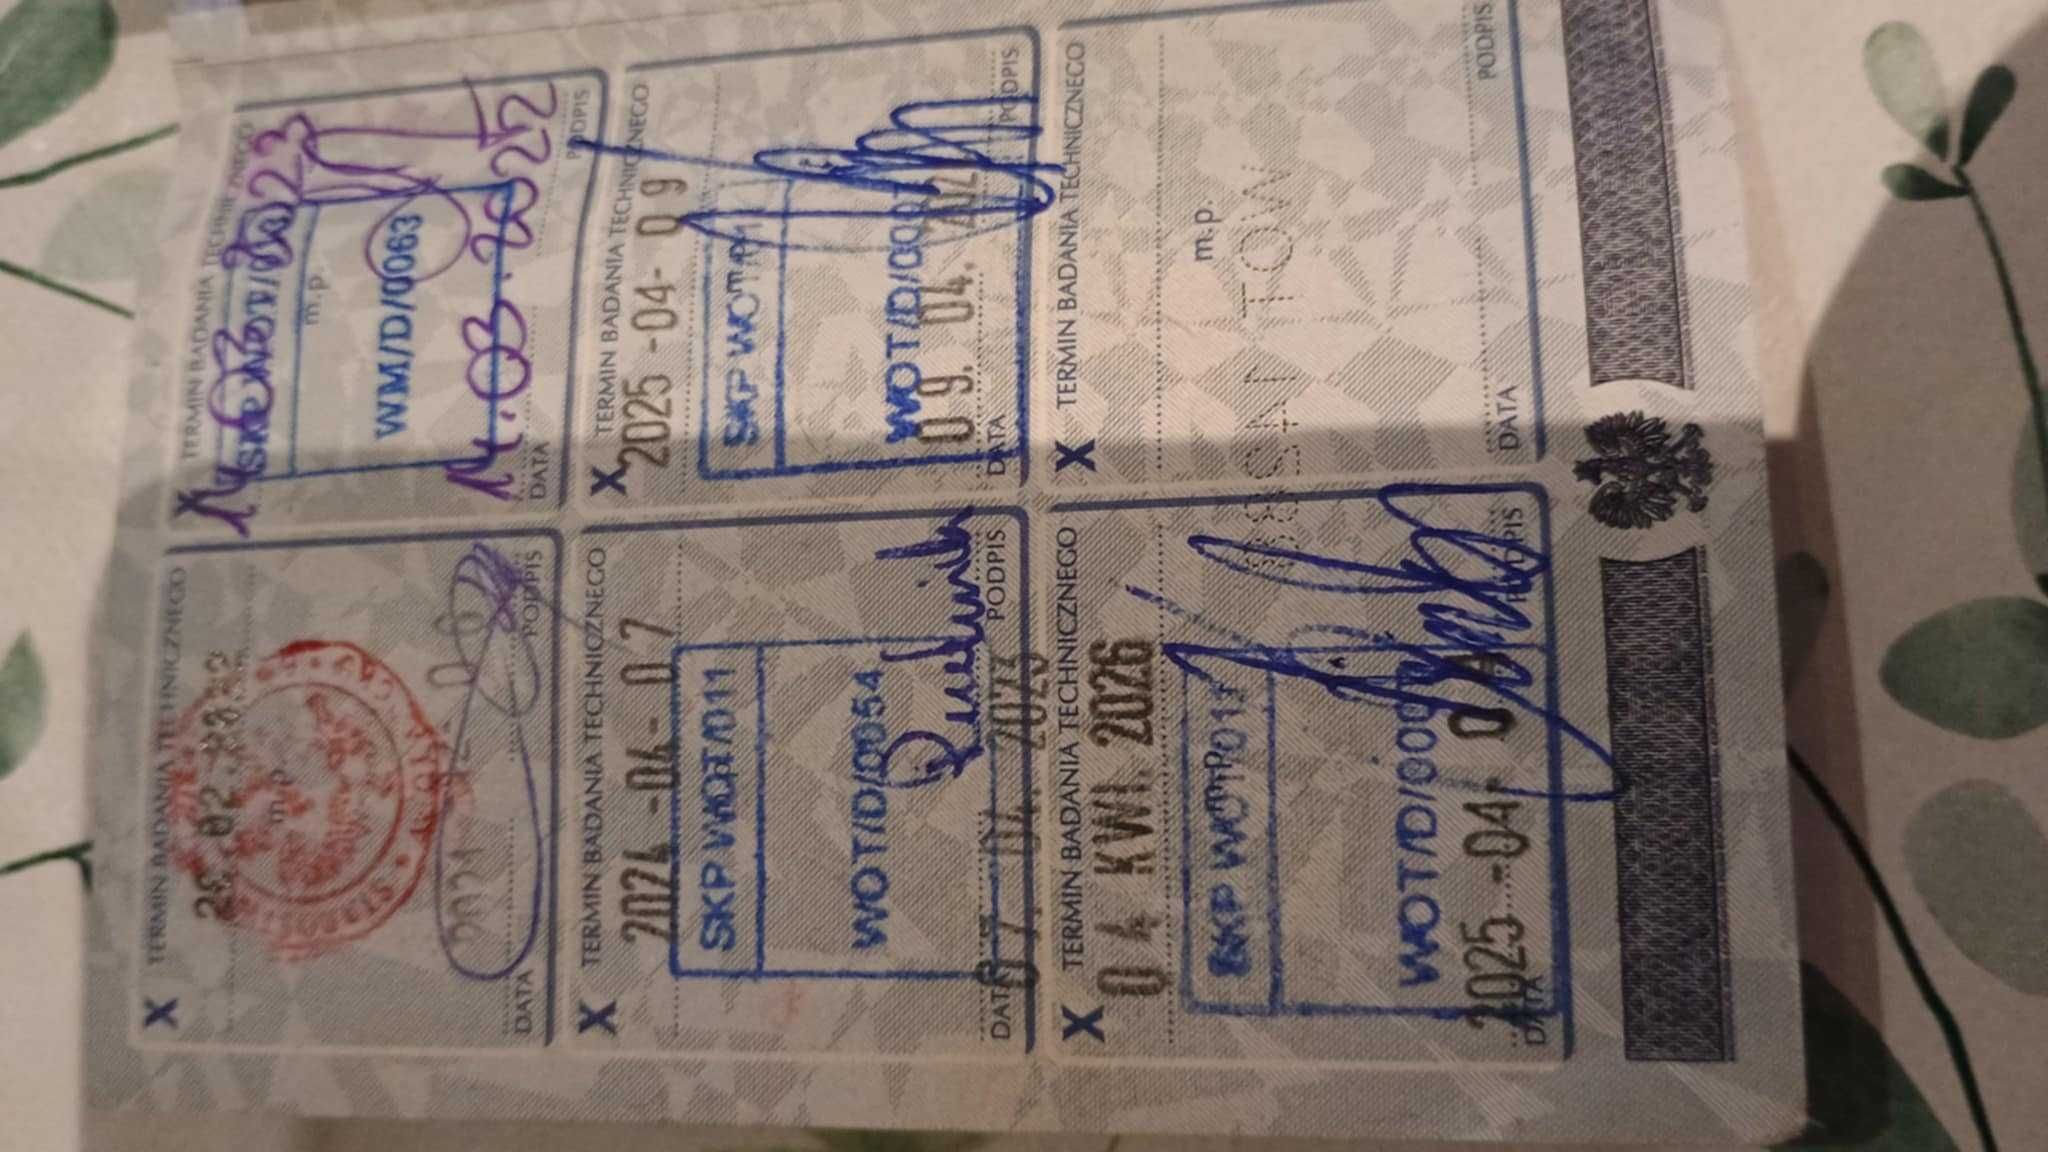 X TERMIN BADANIA TECHNICZNEGO
m.p.
2021
DATA PODPIS
X TERMIN BADANIA TECHNICZNEGO
14.03.2023
m.p.
WM/D/0063
14.03.2022
DATA PODPIS
X TERMIN BADANIA TECHNICZNEGO
2024-04-07
SKP WOT/011
WOT/D/0054
07. 04. 2023
DATA PODPIS
X TERMIN BADANIA TECHNICZNEGO
2025-04-09
SKP WOT
m.p.
09. 04.
DATA PODPIS
X TERMIN BADANIA TECHNICZNEGO
04 KWI. 2026
SKP WOT/011
m.p.
2025-04-04
DATA PODPIS
X TERMIN BADANIA TECHNICZNEGO
m.p.
DATA PODPIS